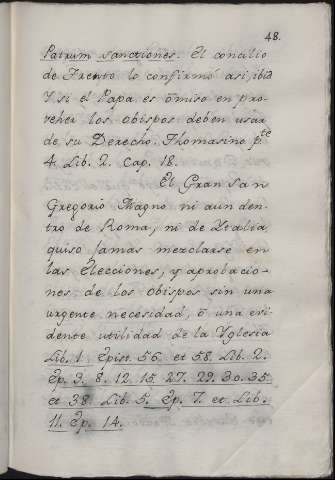 48.
Patrum sanctiones. El concilio
de Trento lo confirmó asi, ibid
Y si el Papa es ōmiso en pro-
veher los obispos deben usar
de su Derecho. Thomasino p.te
4. Lib. 2. Cap. 18.
El Gran San
Gregorio Magno ni aun den-
tro de Roma, ni de Ytalia
quiso Jamas mezclarse en
las Elecciones, y aprobacio-
nes de los obispos sin una
urgente necesidad, ō una evi-
dente utilidad de la Yglesia
Lib. 1. Epist. 56. et 58. Lib. 2.
Ep. 3. 8. 12. 15. 27. 29. 30. 35.
et 38. Lib. 5. Ep. 7. et Lib.
11. Ep. 14.